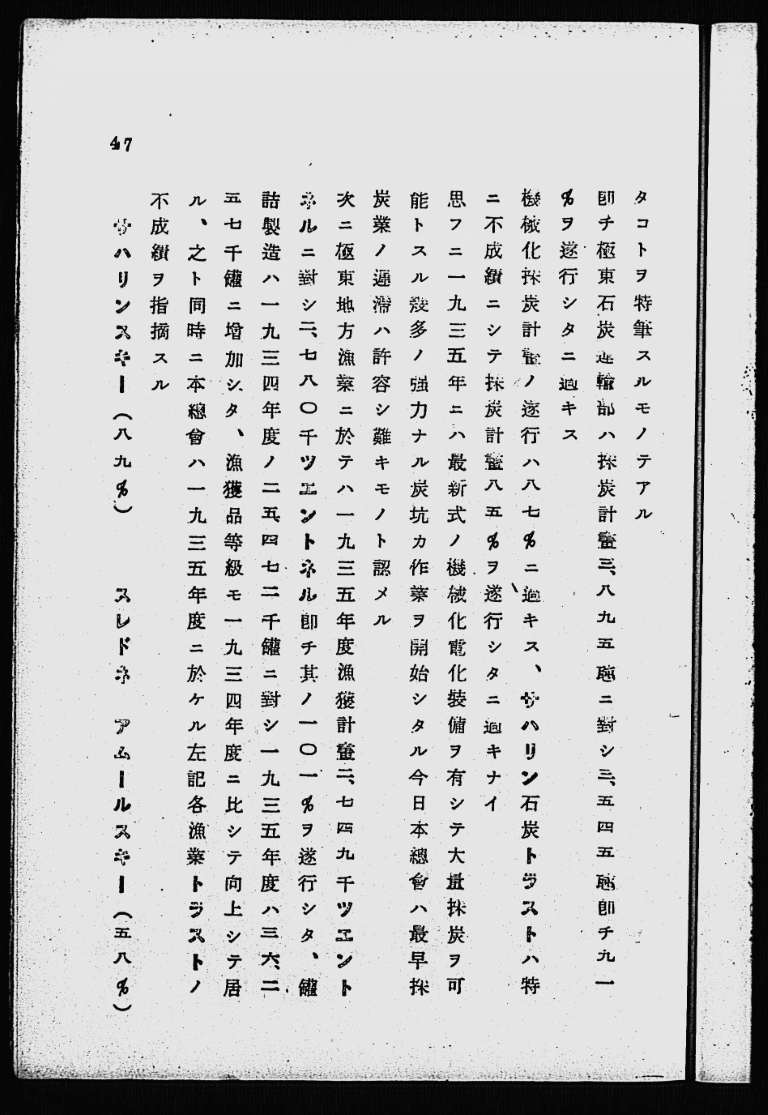 タコトヲ特筆スルモノテアル
卽チ極東石炭運輸部ハ採炭計畫三、八九五瓲ニ對シ三、五四五瓲卽チ九一
%ヲ遂行シタニ過キス
機械化採炭計畫ノ遂行ハ八七%ニ過キス、サハリン石炭トラストハ特
ニ不成績ニシテ採炭計畫八五%ヲ遂行シタニ過キナイ
思フニ一九三五年ニハ最新式ノ機械化電化裝備ヲ有シテ大量採炭ヲ可
能トスル幾多ノ强力ナル炭坑カ作業ヲ開始シタル今日本總會ハ最早採
炭業ノ遲滯ハ許容シ難キモノト認メル
次ニ極東地方漁業ニ於テハ一九三五年度漁獲計畫二、七四九千ツエント
ネルニ對シ二、七八〇千ツエントネル卽チ其ノ一〇一%ヲ遂行シタ、罐
詰製造ハ一九三四年度ノ二五、四七二千罐ニ對シ一九三五年度ハ三六、二
五七千罐ニ增加シタ、漁獲品等級モ一九三四年度ニ比シテ向上シテ居
ル、之ト同時ニ本總會ハ一九三五年度ニ於ケル左記各漁業トラストノ
不成績ヲ指摘スル
サハリンスキー(八九%) スレドネ アムールスキー(五八%)
47